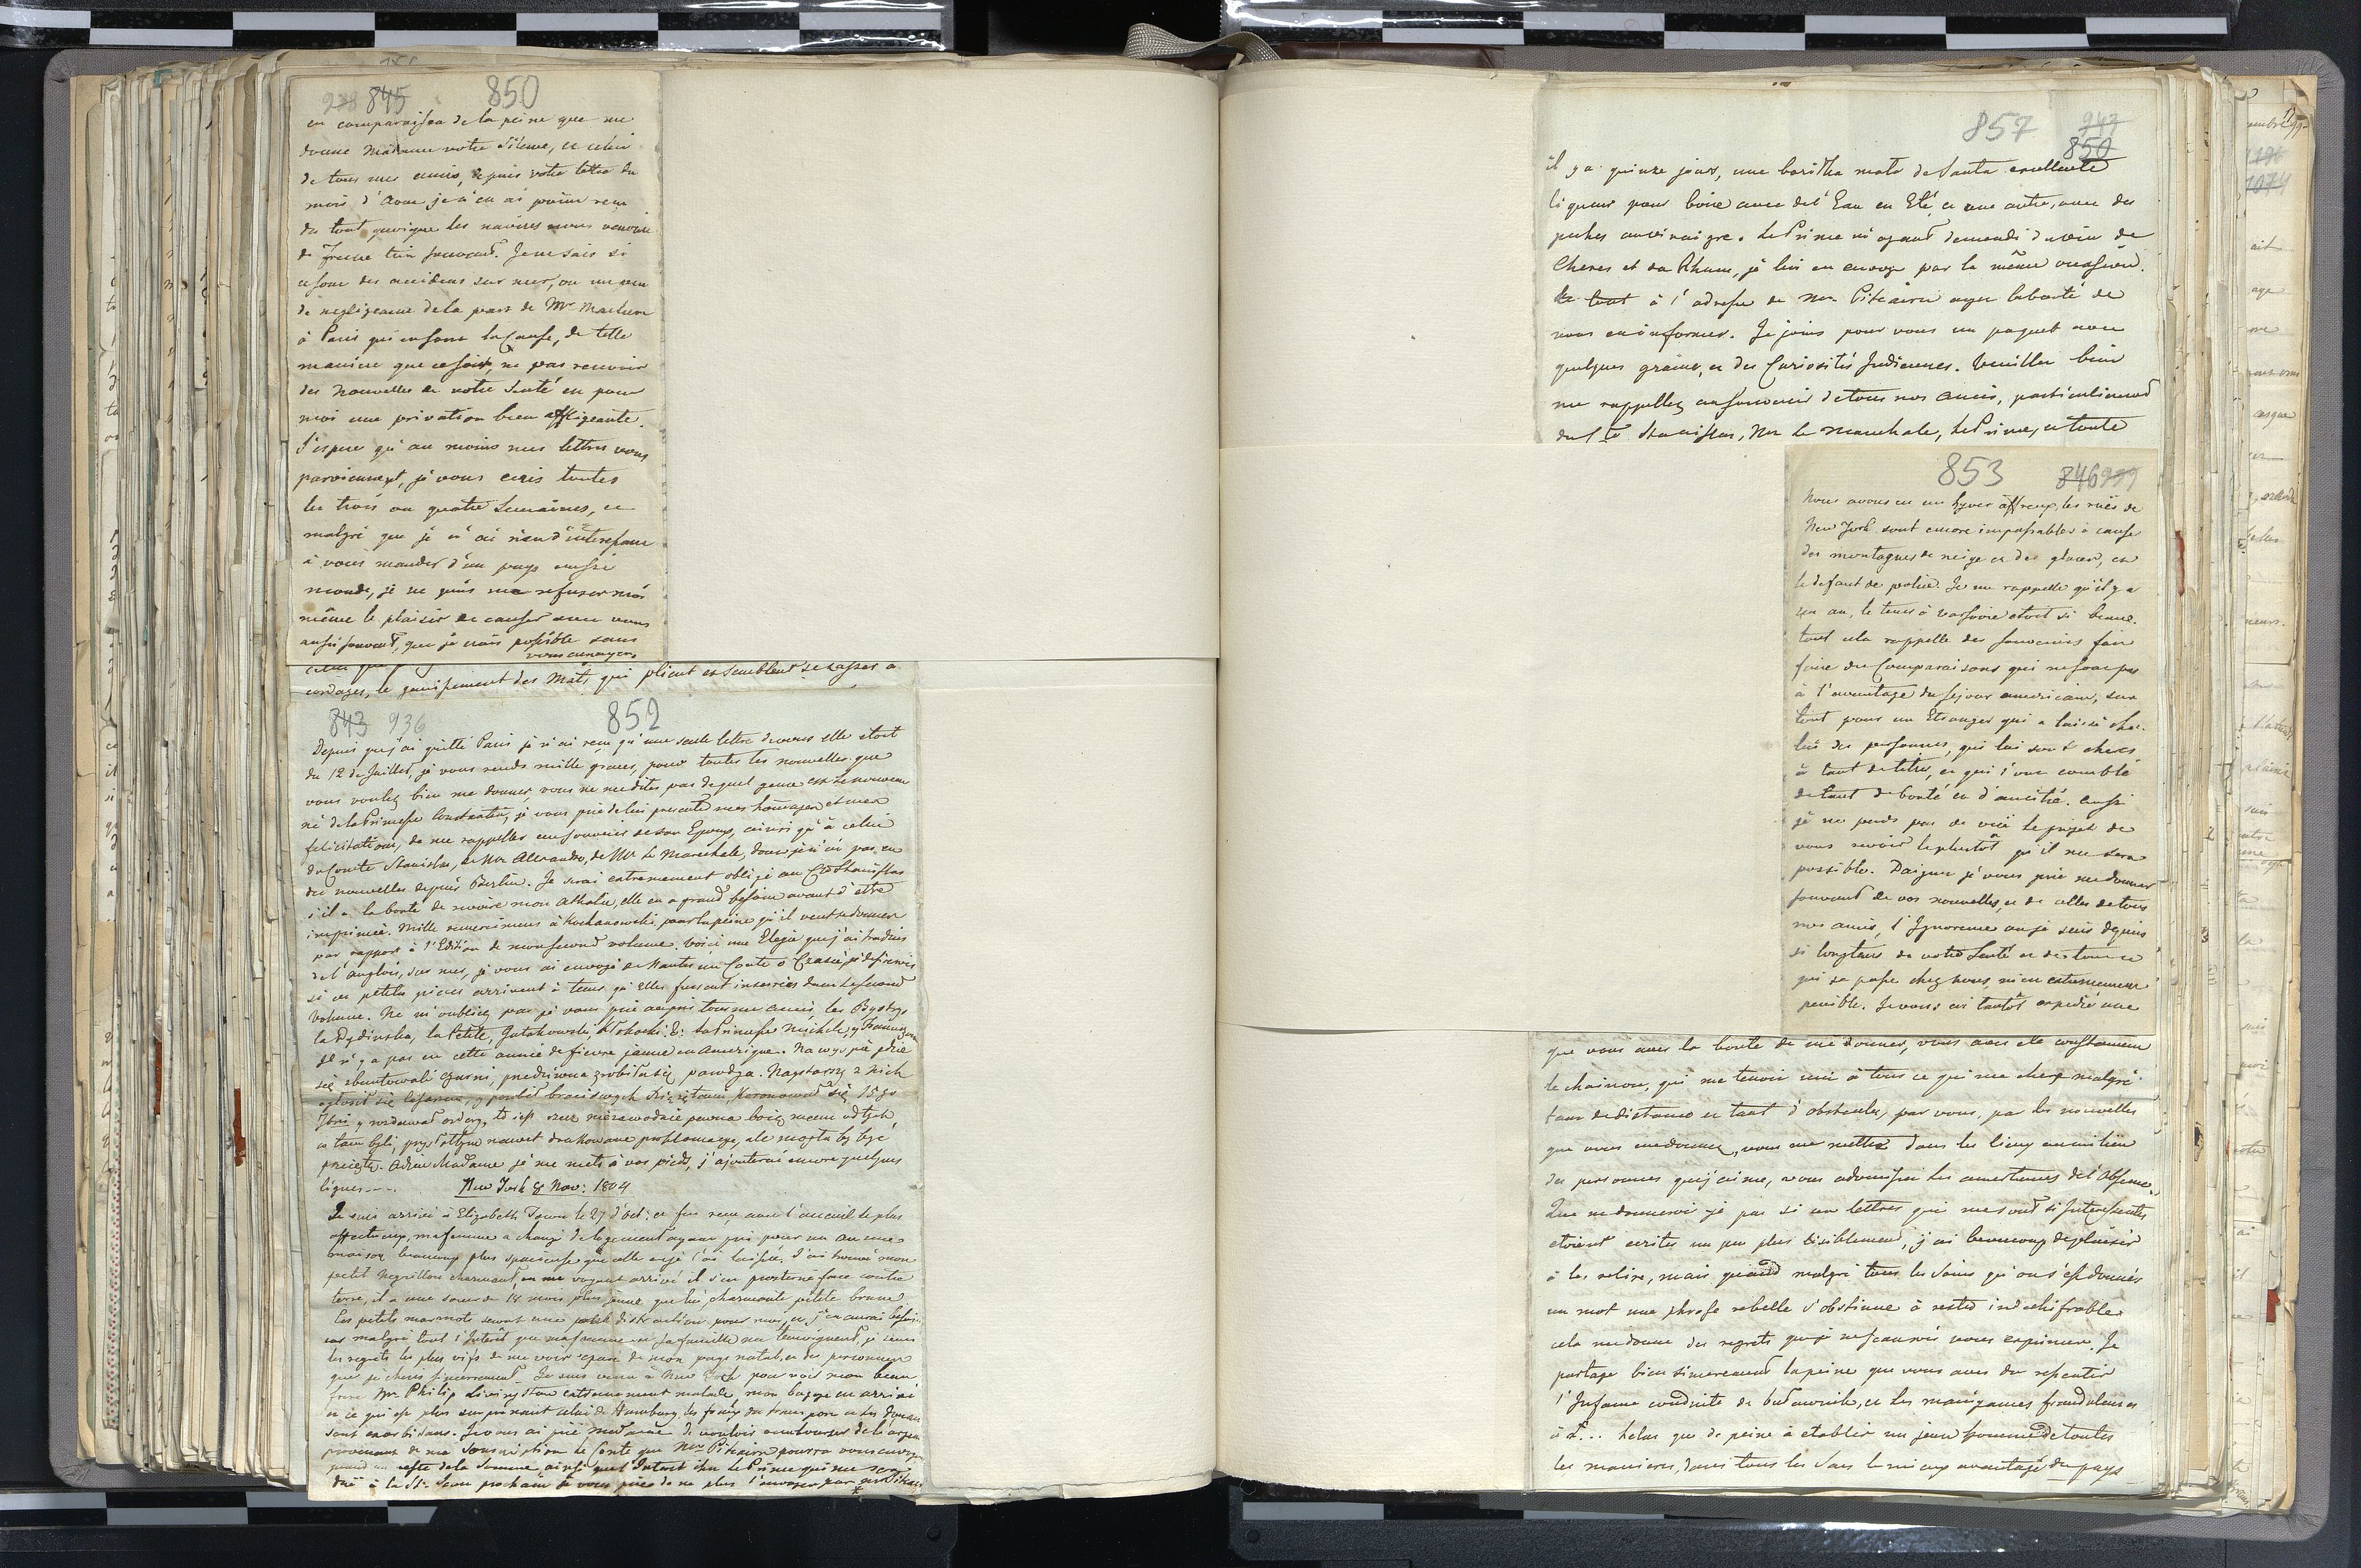 938 845 850
en comparaison de la peine que me
donne Madame votre Silence, et celui
de tous mes amis, depuis votre lettre du
mois d'Aout je n'en ai point reçu
du tout quoique les navires nous venoient
de France tres souvent. Je ne sais si
ce sont des accidens sur mer, ou un peu
de negligeance de la part de Mr
à Paris qui en sont la Cause, de telle
maniere que ce soit, ne pas recevoir
des Nouvelles de votre Santé est pour
moi une privation bien affligeante.
J'espere qu'au moins mes lettres vous
parviennent, je vous ecris toutes
les trois ou quatre Semaines, et
malgré que je n'ai rien d'interessant
à vous mander d'un pays aussi
monde, je ne puis me refuser moi
même le plaisir de causer avec vous
aussi souvent, que je crois possible sans
vous ennuyer.
cordages, le gemissement des Mats qui plient et semblent se casser a
843 936 852
Depuis que j'ai quitté Paris je n'ai reçu qu'une seule lettre de vous elle etoit
du 12 de Juillet, je vous rends mille graces, pour toutes les nouvelles que
vous voulez bien me donner, vous ne me dites pas de quel genre est le nouveau
né de la Princesse Constantin, je vous prie de lui presenter mes homages et mes
felicitations, de me rappeller au souvenir de son Epoux, ainsi qu'à celui
du Comte Stanislas, de Mr Alexandre, de Me la Marechale, dont je n'ai pas eu
des nouvelles depuis Berlin. Je serai extremement obligé au Cte Stanislas
s'il a la bonté de revoire mon Athalie, elle en a grand besoin avant d'etre
imprimée. Mille remercimens à Kochanowski pour la peine qu'il veut se donner
par rapport à l'Edition de mon second volume. voici une Elegie que j'ai traduis
de l'anglois, sur mer, je vous ai envoyé de Nantes un Conte o je desirerois
si ces petites pieces arrivent à tems, qu'elles fussent inserées dans le second
Volume. Ne m'oubliez pas je vous prie auprès tous mes amis, les Bystry
la Dydinska, la Petite, Gutakowski, &: la Princesse Michele, y
Il n'y a pas eu cette année de fievre jaune en Amerique. Na wyspie gdzie
się zbuntowali czarni, przedziwna zrobiła się parodya. Naystarszy z nich
ogłosił się Cesarzem, y porobił braci swych Xiążętami, Koronował się 15go
y rozdawał ordery, to iest rzecz niezawodnie pewna bo ią mam od tych,
co tam byli, przysłano nawet drukowane proklamacye, ale mogła by być
przeięta. Adieu Madame je me mets à vos pieds, j'ajouterai encore quelques
lignes ---. New York 8 Nov: 1804
Je suis arrivé à Elizabeth Town le 27 d'Oct: et fus reçu avec l'accueil le plus
affectueux, ma femme a changé de logement ayant pris pour un an une
maison beaucoup plus spacieuse que celle où je l'ai laissée. J'ai trouvé mon
petit Negrillon charmant, en me voyant arrivé il s'en prosterné face contre
terre, il a une soeur de 18 mois plus jeune que lui, charmante petite brune
Ces petits marmots seront une petite distraction pour moi, et j'en aurai besoin,
car malgré tout l'Interêt que ma femme et sa famille me temoignent, je sens
les regrets les plus vifs de me voir separé de mon pays natal, et des personnes
que je cheris sincerement. Je suis venu à New York pour voir mon beau
frere Mr Philip Livingston extremement malade, mon bagage est arrivé
et ce qui est plus surprenant celui de Hambourg, les frais du transport et des douanes
sont exorbitans. Je vous ai prié Madame de vouloir rembourser de l'argent
provenant de ma Souscription le Conte que Mr Pitcairn pourra vous envoyer
quand au reste de la Somme ainsi que l'Interet chez le Prince qui me sera
dû à la St. Jean prochain je vous prie de ne plus l'envoyer par
857 947
850
il y a quinze jours, une bariłka mała de Santa excellente
liqueur pour boire avec de l'Eau en Eté, et une autre, avec des
peches au vinaigre. Le Prince m'ayant demandé du vin de
Cheres et du Rhum, je lui en envoye par la même occasion.
le tout à l'adresse de Mr Pitcairn ayez la bonté de
nous en informer. Je joins pour vous un paquet avec
quelques graines, et des Curiosités Indiennes. Veuillez bien
me rappellez au souvenir de tous nos amis, particulierement
du Cte Stanislas, Me la Marechale, Le Prince, et toute
853 846 939
Nous avons eu un hyver affreux, les rües de
New York sont encore impassables à cause
des montagnes de neige et des glaces, et
le defaut de police. Je me rappelle qu'il y a
un an, le tems à Varsovie etoit si beau.
tout cela rappelle des souvenirs fait
faire des Comparaisons qui ne sont pas
à l'avantage du sejour americain, sur
tout pour un Etranger qui a laissé chez
lui des personnes, qui lui sont cheres
à tant de titres, et qui l'ont comblé
de tant de bonté et d'amitié. aussi
je ne perds pas de vüe le projet de
vous revoir le plustôt qu'il me sera
possible. Daignez je vous prie me donner
souvent de vos nouvelles, et de celles de tous
mes amis, l'Ignorance ou je suis depuis
si longtems de votre Santé et de tout ce
qui se passe chez vous, m'est extremement
penible. Je vous ai tantôt expedié une
que vous avez la bonté de me donner, vous avez ete constamment
le chainon, qui me tenoit uni à tous ce qui me cher malgré
tant de distance et tant d'obstacles, par vous, par les nouvelles
que vous me donnez, vous me mettez dans les lieux au milieu
des personnes que j'aime, vous adoucissez les amertumes de l'Absence,
Que ne donnerois je pas si vos lettres qui me sont si Interessantes
etoient ecrites un peu plus lisiblement, j'ai beaucoup de plaisir
à les relire, mais quand malgré tous les Soins qu'on s'est donnés
un mot une phrase rebelle s'obstinne à rester indechifrable
cela me donne des regrets que je ne sçaurois vous exprimer. Je
partage bien sincerement la peine que vous avez du ressentir
l'Infame conduite de, et les manigances frauduleuses
à L... helas que de peine à etablir un jeune homme de toutes
les manieres, dans tous les Sens le mieux avantagé du pays